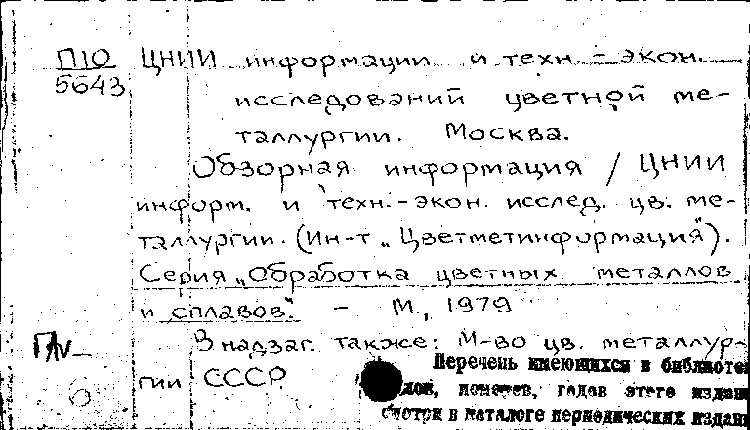 П10 ЦНИИ информации и техн.-экон.
5643 исследований цветной ме-
таллургии. Москва.
Обзорная информация / ЦНИИ
информ. и техн.-экон. исслед. цв. ме-
таллургии. (Ин-т „Цветметинформация").
Серия „Обработка цветных металлов
и сплавов". - М., 1979
В надзаг. также: М-во цв. металлур-
гии СССР
Перечень имеющихся в библиоте
дов, номеров, годов этого издан
смотри в каталоге периодических издани